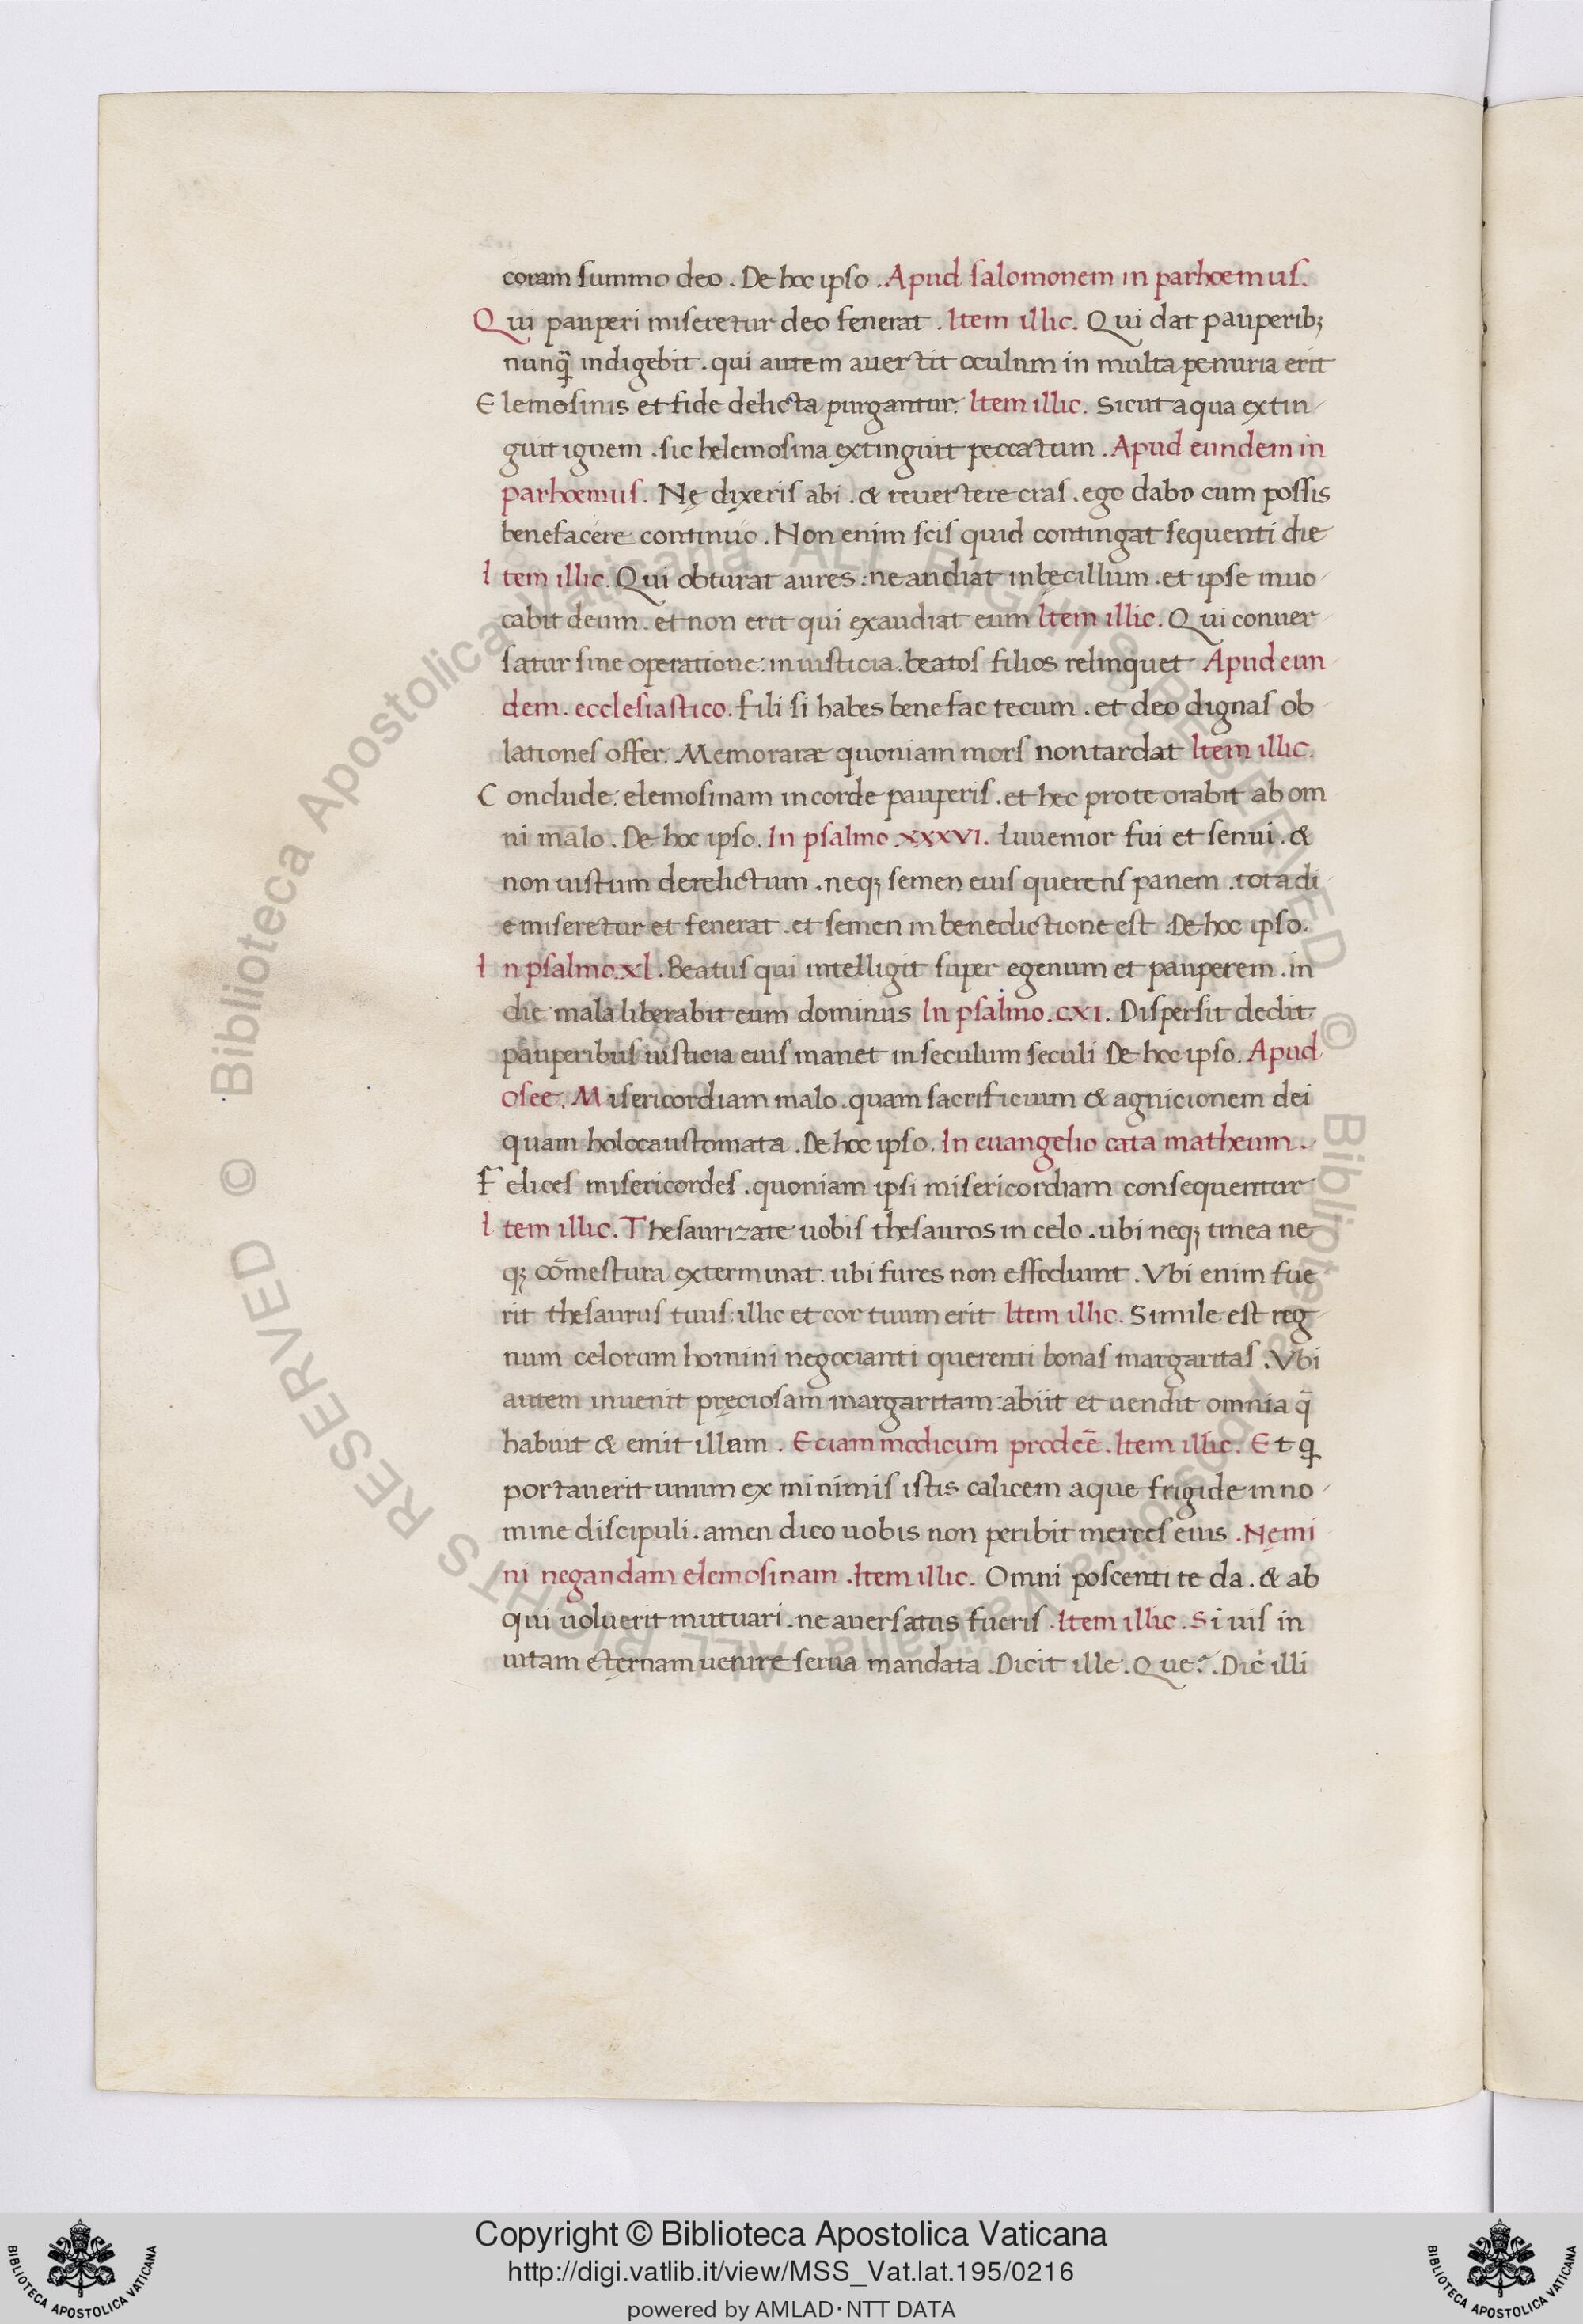 coram summo deo . De hoc ipso . Apud salomonem in parhoemus.
Qui pauperi miseretur deo fenerat . Item illic. Qui dat pauperibꝫ
nunꝙ̃ indigebit . qui autem auertit oculum in multa penuria erit
Elemosinis et fide delicta purgantur. Item illic. Sicut aqua extin-
guit ignem . sic helemosina extinguit peccatum . Apud eundem in
parhoemus. Nę dixeris abi . & reuertere cras . ego dabo cum possis
benefacere continuo . Non enim scis quid contingat sequenti die
Item illic. Qui obturat aures : ne audiat inbęcillum . et ipse inuo-
cabit deum . et non erit qui exaudiat eum Item illic. Qui conuer-
satur sine operatione : in iusticia . beatos filios relinquet Apud eun
dem . ecclesiastico. fili si habes bene fac tecum . et deo dignas ob
lationes offer. Memoraræ quoniam mors non tardat Item illic.
Conclude: elemosinam in corde pauperis . et hec pro te orabit ab om
ni malo . De hoc ipso. In psalmo .xxxvi. Iuuemor fui et senui . &
non iustum derelictum . neqꝫ semen eius querens panem . tota di
e miseretur et fenerat . et semen in benedictione est . De hoc ipso.
In psalmo.xl . Beatus qui intelligit super egenum et pauperem . in
die mala liberabit eum dominus In psalmo . cxi . Dispersit dedit
pauperibus iusticia eius manet in seculum seculi De hoc ipso. Apud
osee. Misericordiam malo . quam sacrificium & agnicionem dei
quam holocaustomata . De hoc ipso. In euangelio cata matheum .
Felices misericordes . quoniam ipsi misericordiam consequentur
Item illic. Thesaurizate uobis thesauros in celo . ubi neqꝫ tinea ne
qꝫ cōmestura exterminat . ubi fures non effodiunt . Vbi enim fue
rit thesaurus tuus : illic et cor tuum erit Item illic. Simile est reg-
num celorum homini negocianti querenti bonas margaritas . Vbi
autem inuenit pręciosam margaritam : abiit et uendit omnia q̄
habuit & emit illam . Eciam modicum prodeē . Item illic. Et ꝗ
portauerit unum ex minimis istis calicem aque frigide in no-
mine discipuli . amen dico uobis non peribit merces eius . Nęmi
ni negandam elemosinam . Item illic. Omni poscenti te da . & ab
qui uoluerit mutuari . ne auersatus fueris . Item illic . Si uis in
uitam eternam uenire serua mandata . Dicit ille . Que? . Dic illi
Copyright © Biblioteca Apostolica Vaticana
http://digi.vatlib.it/view/MSS_Vat.lat.195/0216
powered by AMLAD·NTT DATA
BIBLIOTECA APOSTOLICA VATICANA
BIBLIOTECA APOSTOLICA VATICANA
© Biblioteca Apostolica Vaticana ALL RIGHTS RESERVED © Biblioteca Apostolica Vaticana ALL RIGHTS RESERVED